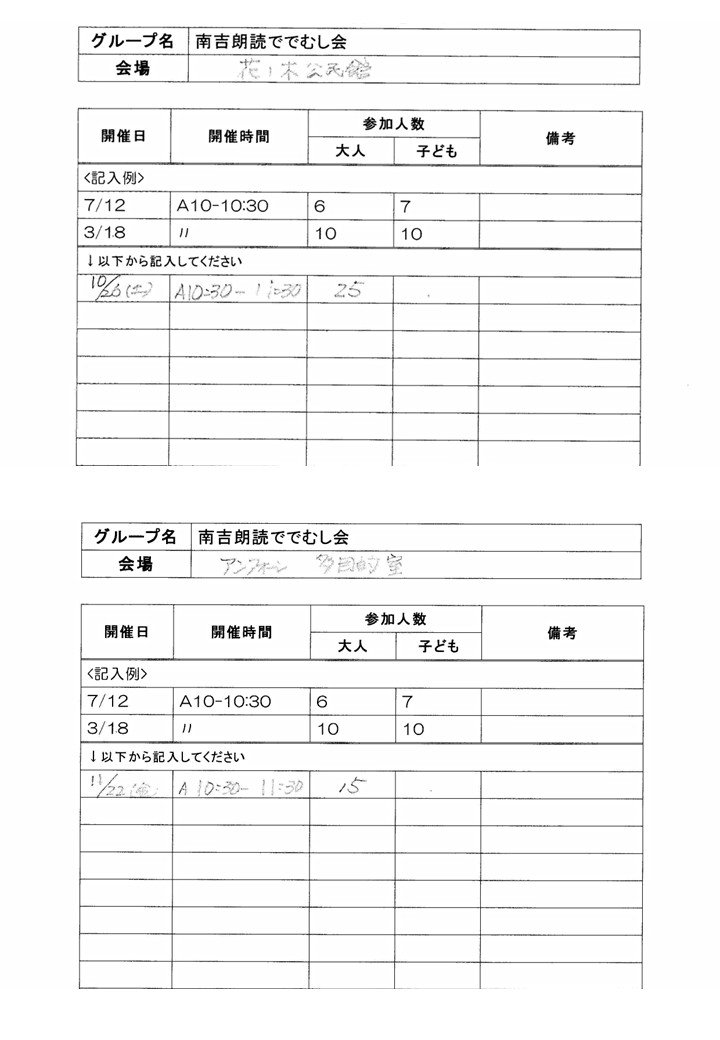 グループ名 南吉朗読ででむし会
会場 花ノ木公民館
開催日 開催時間 参加人数 備考
大人 子ども
<記入例>
7/12 A10-10:30 6 7
3/18 〃 10 10
↓以下から記入してください
10/26(土) A10:30-11:30 25
グループ名 南吉朗読ででむし会
会場 アンフォーレ 多目的室
開催日 開催時間 参加人数 備考
大人 子ども
<記入例>
7/12 A10-10:30 6 7
3/18 〃 10 10
↓以下から記入してください
11/22(金) A10:30-11:30 15